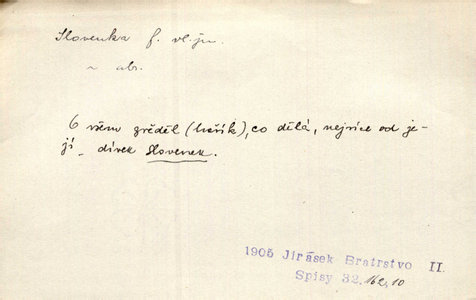 Slovenka f. vl. jm.
~ abs.
O všem zvěděl (hošík), co dělá, nejvíce od je-
jí dívek Slovenek.
1905 Jirásek Bratrstvo II.
Spisy 32, 162, 10